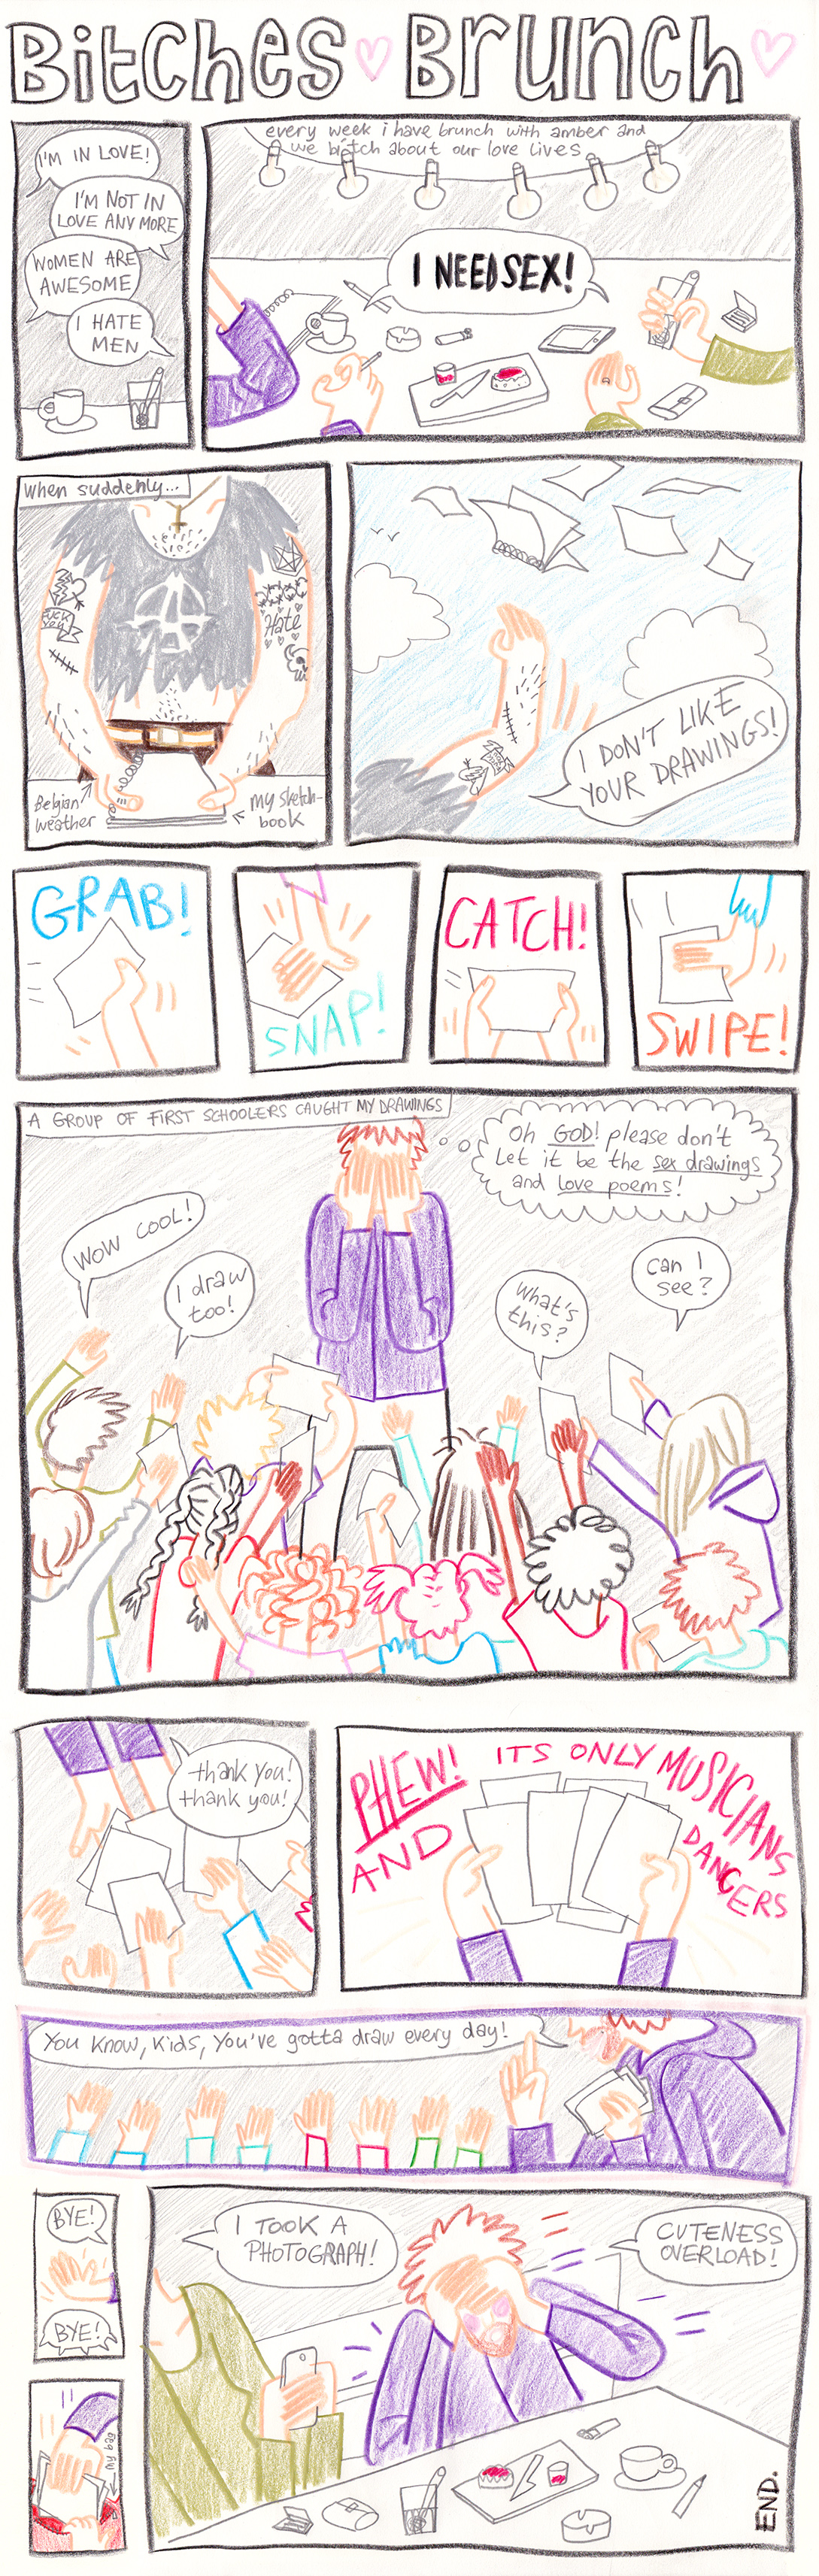 Bitches Brunch
I'M IN LOVE!
I'M NOT IN
LOVE ANY MORE
WOMEN ARE
AWESOME
I HATE
MEN
every week i have brunch with amber and
we bitch about our love lives
I NEED SEX!
when suddenly...
FUCK
YOU
Hate
Belgian
weather
my sketch-
book
I DON'T LIKE
YOUR DRAWINGS!
GRAB!
SNAP!
CATCH!
SWIPE!
A GROUP OF FIRST SCHOOLERS CAUGHT MY DRAWINGS
Oh GOD! please don't
Let it be the sex drawings
and love poems!
WOW COOL!
I draw
too!
What's
this?
can I
see?
thank you!
thank you!
PHEW! ITS ONLY MUSICIANS
AND DANCERS
You know, kids, you've gotta draw every day!
BYE!
BYE!
my bag
I TOOK A
PHOTOGRAPH!
CUTENESS
OVERLOAD!
END.